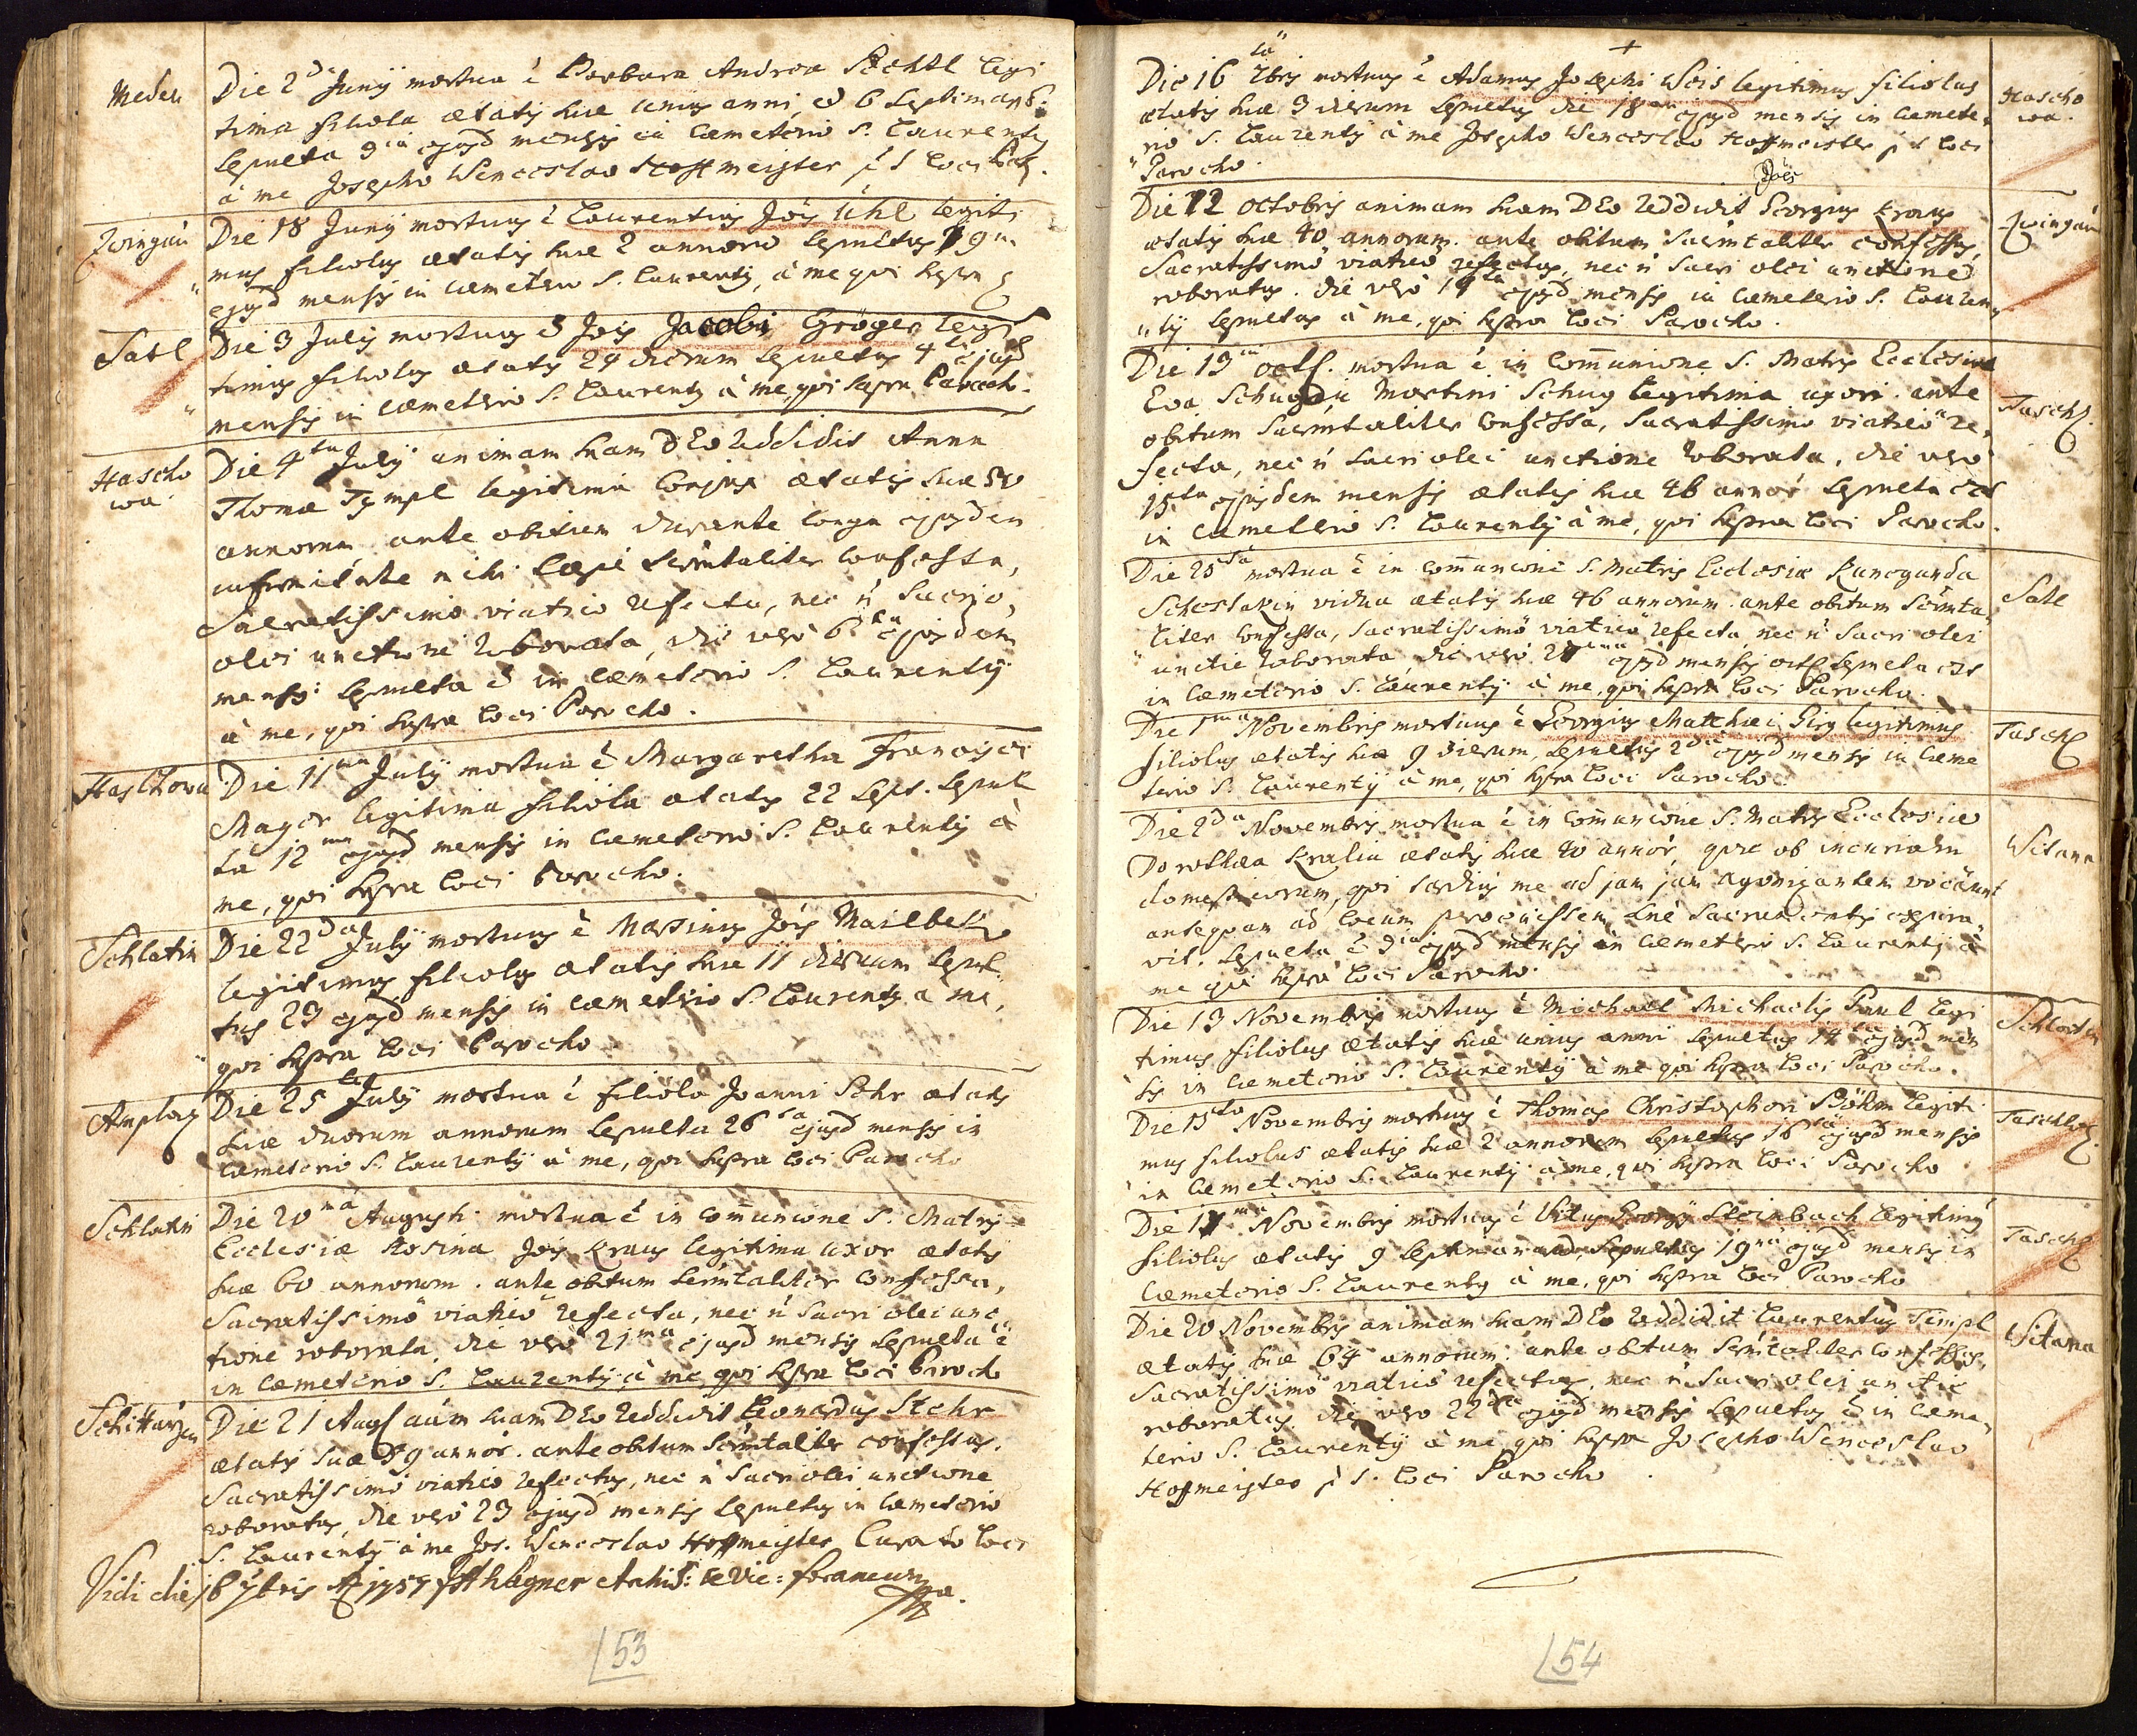 Meden
Die 2da Junÿ mortua ē Barbara Andrea legi
tima filiola ætatis suæ unius anni, et 6 septimarũ
sepulta 3tia ejusd mensis in cæmeterio S. Laurentÿ
à me Josepho Wenceslao Hoffmeister p t loci Par.
Zwingau
Die 18 Junÿ mortuus ē Laurentius Jois Uhl legiti
mus filiolus ætatis suæ 2 annorũ sepultus 19na
ejusd mensis in cæmeterio S. Laurentÿ, à me qui supra
Satl
Die 3 Julÿ mortuus ē Jois Jacobi Gröger legi
timus filiolus ætatis 24 dierum sepultus 4ta ejusd
mensis in cæmeterio S. Laurentÿ à me, qui supra Parocho.
Hascho
wa
Die 4ta Julÿ animam suam DEo reddidit Anna
Thomæ Tympl legitima conjux ætatis suæ 80
annorum. ante obitum durante longa ejusdem
infirmitate mihi sæpè sacrm̃taliter confessa,
Sacratissimo viatico refecta, nec ñ sacri
olei unctione roborata, die verò 6ta ejusdem
mensis sepulta ē in cæmeterio S. Laurentÿ
à me, qui supra loci Parocho.
Haschowa
Die 11ma Julÿ mortua ē Margaretha Francisci
Mayer legitima filiola ætatis 22 sept. sepul
ta 12ma ejusd mensis in cæmeterio S. Laurentÿ à
me, qui supra loci Parocho.
Schlatin
Die 22da Julÿ mortuus ē Martinus Jois Mailbek
legitimus filiolus ætatis suæ 11 dierum sepul
tus 23 ejusd mensis in cæmeterio S. Laurentÿ à me,
qui supra loci Parocho
Amplatz
Die 25ta Julÿ mortua ē filiola Joanni Sehr ætatis
suæ duorum annorum sepulta 26ta ejusd mensis in
cæmeterio S. Laurentÿ à me, qui supra loci Parocho
Schlatin
Die 20ma Augusti mortua ē in com̃unione S. Matris
Ecclesiæ Rosina Jois Kraus legitima uxor ætatis
suæ 60 annorum. ante obitum sacrm̃taliter confessa,
Sacratissimo viatico refecta, nec ñ sacri olei unc
tione roborata, die verò 21ma ejusd mensis sepulta ē
in cæmeterio S. Laurentÿ à me qui supra loci Paroch
Schittarzen
Die 21 Aug aĩam suam DEo reddidit Leonardus Stehr
ætatis suæ 89 annor. ante obitum sacrm̃taliter confessus,
Sacratissimo viatico refectus, nec ñ sacri olei unctione
roboratus, die verò 23 ejusd mensis sepultus in cæmeterio
S. Laurentÿ à me Jos. Wenceslao Hoffmeister Curato loci
Vidi die 16 7bris Ao 1757 Archid: & Vic: foraneus
53
Die 16ta Xbris mortuus ē Adamus Josephi Weis legitimus filiolus
ætatis suæ 3 dierum sepultus die 18 ejusd mensis in cæmete
rio S. Laurentÿ à me Josepho Wenceslao Hoffmeister p t loci
Parocho.
Hascho
wa.
Die 12 octobris animam suam DEo reddidit Jois Georgius Kraus
ætatis suæ 40 annorum. ante obitum sacrm̃taliter confessus,
Sacratissimo viatico refectus, nec ñ sacri olei unctione
roboratus. die verò 14ta ejusd mensis in cæmeterio S. Lauren
tÿ sepultus à me, qui supra loci Parocho.
Zwingau
Die 13tia oct. mortua ē in com̃unione S. Matris Ecclesiæ
Eva Schugin Martini Schug legitima uxor. ante
obitum sacrm̃taliter confessa, Sacratissimo viatico re
fecta, nec ñ sacri olei unctione roborata, die verò
15ta ejusdem mensis ætatis suæ 46 annor sepulta est
in cæmeterio S. Laurentÿ à me, qui supra loci Parocho.
Tasch
Die 25ta mortua ē in com̃unione S. Matris Ecclesiæ Kunegunda
vidua ætatis suæ 46 annorum. ante obitum sacrm̃ta
liter confessa, Sacratissimo viatico refecta nec ñ sacri olei
unctie roborata, die verò 27ma ejusd mensis oct sepulta est
in cæmeterio S. Laurentÿ à me, qui supra loci Parocho.
Satl
Die 1ma Novembris mortuus ē Georgius Matthæi Girg legitimus
filiolus ætatis suæ 9 dierum, sepultus 2da ejusd mensis in cæme
terio S. Laurentÿ à me, qui supra loci Parocho.
Tasch
Die 2da Novembris mortua ē in com̃unione S. Matris Ecclesiæ
Dorothæa Kralin ætatis suæ 40 annor, quæ ob incuriam
domesticorum, qui tardius me ad jam jam agonizantem vocârunt
antequam ad locum pervenissem sine sacramentis expira
vit. sepulta ē 3tia ejusd mensis in cæmeterio S. Laurentÿ à
me qui supra loci Parocho.
Witana
Die 13 Novembris mortuus ē Michael Michaelis Paul legi
timus filiolus ætatis suæ unius anni sepultus 14ta ejusd men
sis in cæmeterio S. Laurentÿ à me qui supra loci Parocho.
Schlatin
Die 15ta Novembris mortuus ē Thomas Christophori Böhm legiti
mus filiolus ætatis suæ 2 annorum sepultus 16ta ejusd mensis
in cæmeterio S. Laurentÿ à me, qui supra loci Parocho
Taschlo
Die 17ma Novembris mortuus ē Vitus Georgÿ Steinbach legitimus
filiolus ætatis 9 septimanarũ, sepultus 19na ejusd mensis in
cæmeterio S. Laurentÿ à me, qui supra loci Parocho
Tasch
Die 20 Novembris animam suam DEo reddidit Laurentius Timpl
ætatis suæ 64 annorum. ante obitum sacrm̃taliter confessus,
Sacratissimo viatico refectus, nec ñ sacri olei unctie
roboratus, die verò 22da ejusd mensis sepultus ē in cæme
terio S. Laurentÿ à me qui supra Josepho Wenceslao
Hoffmeister p t. loci Parocho
Witana
54